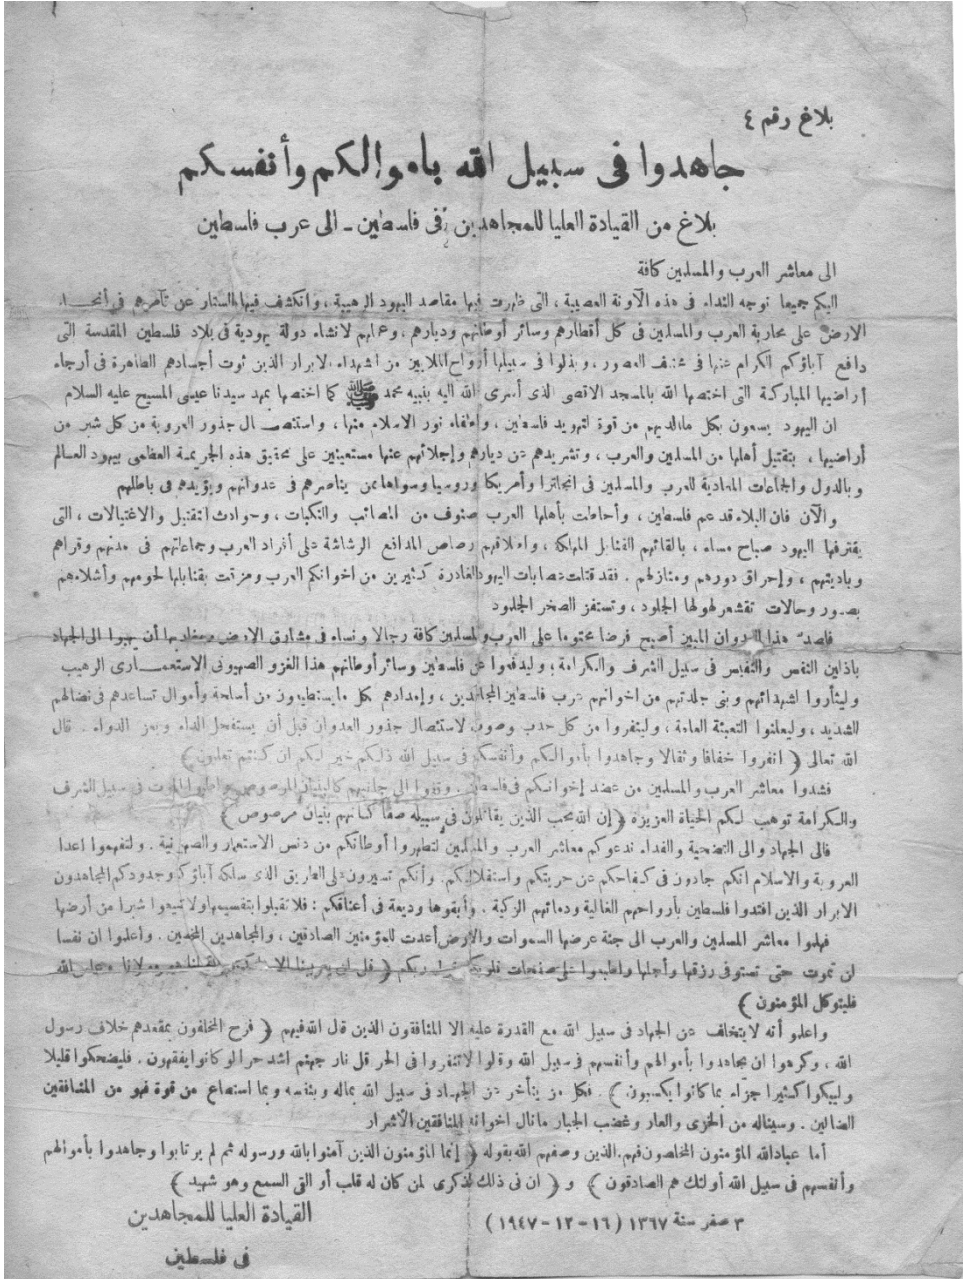 بلاغ رقم ٤
جاهدوا فى سبيل الله بأموالكم وأنفسكم
بلاغ من القيادة العليا للمجاهدين فى فلسطين ـ الى عرب فلسطين
الى معاشر العرب والمسلمين كافة
اليكم جميعا نوجه النداء فى هذه الآونة العصيبة ، التى ظهرت فيها مقاصد اليهود الرهيبة ، وانكشف فيها الستار عن تآمرهم فى أنحاء
الارض على محاربة العرب والمسلمين فى كل أقطارهم وسائر أوطانهم وديارهم ، وعملهم لانشاء دولة يهودية فى بلاد فلسطين المقدسة التى
دافع آباؤكم الكرام عنها فى مختلف العصور ، وبذلوا فى سبيلها أرواح الملايين من الشهداء الابرار الذين ثوت أجسادهم الطاهرة فى أرجاء
أراضيها المباركة التى اختصها الله بالمسجد الاقصى الذى أسرى الله اليه بنبيه محمد ﷺ كما اختصها بمهد سيدنا عيسى المسيح عليه السلام
ان اليهود يسعون بكل مالديهم من قوة لتهويد فلسطين ، واطفاء نور الاسلام منها ، واستئصال جذور العروبة من كل شبر من
أراضيها ، بتقتيل أهلها من المسلمين والعرب ، وتشريدهم من ديارهم وإجلائهم عنها مستعينين على تحقيق هذه الجريمة العظمى بيهود العالم
وبالدول والجماعات المعادية للعرب والمسلمين فى انجلترا وأمريكا وروسيا وسواها ممن يناصرهم فى عدوانهم ويؤيدهم فى باطلهم
والآن فان البلاء قد عم فلسطين ، وأحاطت بأهلها العرب صنوف من المصائب والنكبات ، وحوادث التقتيل والاغتيالات ، التى
يقترفها اليهود صباح مساء ، بالقائهم القنابل المهلكة ، واطلاقهم رصاص المدافع الرشاشة على أفراد العرب وجماعاتهم فى مدنهم وقراهم
وباديتهم ، وإحراق دورهم ومنازلهم . فقد قتلت عصابات اليهود الغادرة كثيرين من اخوانكم العرب ومزقت بقنابلها لحومهم وأشلاءهم
بصور وحالات تقشعر لهولها الجلود ، وتستفز الصخر الجلمود
فصد هذا العدوان المبين أصبح فرضا محتوما على العرب والمسلمين كافة رجالا ونساء فى مشارق الارض ومغاربها أن يهبوا الى الجهاد
باذلين النفس والنفيس فى سبيل الشرف والكرامة ، وليدفعوا عن فلسطين وسائر أوطانهم هذا الغزو الصهيونى الاستعمارى الرهيب
وليثأروا لشهدائهم وبنى جلدتهم من اخوانهم عرب فلسطين المجاهدين ، وإمدادهم بكل ما يستطيعون من أسلحة وأموال تساعدهم فى نضالهم
الشديد ، وليعلنوا التعبئة العامة ، ولينفروا من كل حدب وصوب لاستئصال جذور العدوان قبل أن يستفحل الداء ويعز الدواء . قال
الله تعالى ﴿ انفروا خفافا وثقالا وجاهدوا بأموالكم وأنفسكم فى سبيل الله ذالكم خير لكم ان كنتم تعلمون ﴾
فشدوا معاشر العرب والمسلمين من عضد إخوانكم فى فلسطين . وقفوا الى جانبهم كالبنيان المرصوص واطلبوا الموت فى سبيل الشرف
والكرامة توهب لكم الحياة العزيزه ﴿ إن الله يحب الذين يقاتلون فى سبيله صفا كأنهم بنيان مرصوص ﴾
فالى الجهاد والى التضحية والفداء ندعوكم معاشر العرب والمسلمين لتطهروا أوطانكم من دنس الاستعمار والصهيونية . ولتفهموا اعدا
العروبة والاسلام انكم جادون فى كفاحكم عن حريتكم واستقلالكم . وأنكم تسيرون على الطريق الذى سلكه آباؤكم وجدودكم المجاهدون
الابرار الذين افتدوا فلسطين بأرواحهم الغالية ودمائهم الزكية . وأبقوها وديعة فى أعناقكم : فلا تقبلوا بتقسيمها ولا تضيعوا شبرا من أرضها
فهلموا معاشر المسلمين والعرب الى جنة عرضها السموات والارض أعدت للمؤمنين الصادقين ، والمجاهدين المخلصين . واعلموا ان نفسا
لن تموت حتى تستوفى رزقها وأجلها واطبعوا على صفحات قلوبكم قول ربكم ﴿ قل لن يصيبنا الا ما كتب الله لنا هو مولانا وعلى الله
فليتوكل المؤمنون ﴾
واعلمو أنه لا يتخلف عن الجهاد فى سبيل الله مع القدرة عليه الا المنافقون الذين قال الله فيهم ﴿ فرح المخلفون بمقعدهم خلاف رسول
الله ، وكرهوا ان يجاهدوا بأموالهم وأنفسهم فى سبيل الله وقالوا لا تنفروا فى الحر قل نار جهنم اشد حرا لو كانوا يفقهون . فليضحكوا قليلا
وليبكوا كثيرا جزاء بما كانوا يكسبون ﴾ . فكل من يتأخر عن الجهاد فى سبيل الله بماله وبنفسه وبما استطاع من قوة فهو من المنافقين
الضالين . وسيناله من الخزى والعار وغضب الجبار مانال اخوانه المنافقين الأشرار
أما عباد الله المؤمنون المخلصون فهم الذين وصفهم الله بقوله ﴿ إنما المؤمنون الذين آمنوا بالله ورسوله ثم لم يرتابوا وجاهدوا بأموالهم
وأنفسهم فى سبيل الله أولئك هم الصادقون ﴾ و ﴿ ان فى ذلك لذكرى لمن كان له قلب أو القى السمع وهو شهيد ﴾
٣ صفر سنة ١٣٦٧ (١٦-١٢-١٩٤٧)
القيادة العليا للمجاهدين
فى فلسطين